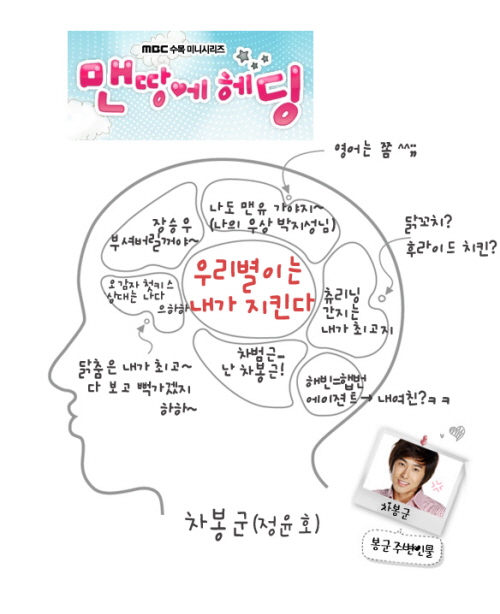 MBC 수목 미니시리즈
맨땅에 헤딩
영어는 쫌 ^^;;
나도 맨유 가야지~
(나의 우상 박지성님)
장승우
부셔버릴꺼야~
닭꼬치?
후라이드 치킨?
우리별이는
내가 지킨다
오감자 첫키스
상대는 나다
으하하
츄리닝
간지는
내가 최고지
닭춤은 내가 최고~
다 보고 뻑가겠지
하하~
차범근...
난 차봉근!
해빈=햅번
에이젼트 → 내여친?ㅋㅋ
차봉군
차봉군(정윤호)
봉군 주변인물